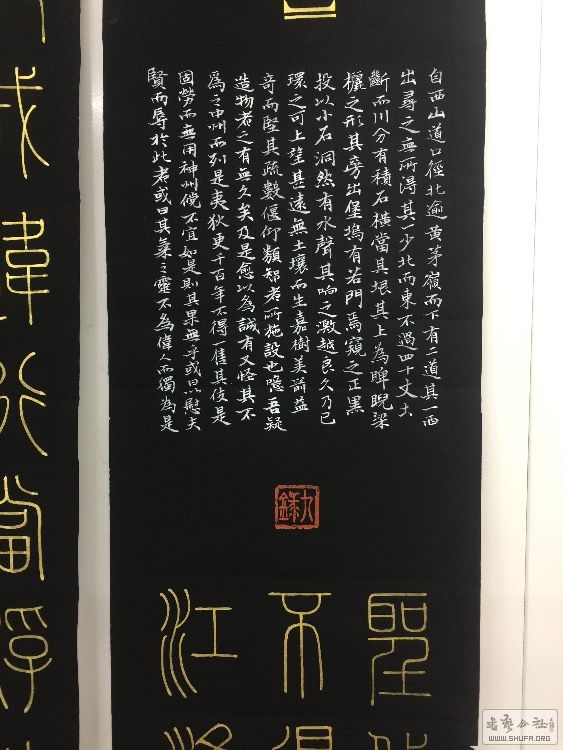 自西山道口徑北逾黃茅嶺而下有二道其一西
出尋之無所得其一少北而東不過四十丈土
斷而川分有積石橫當其垠其上為睥睨梁
欐之形其旁出堡塢有若門焉窺之正黑
投以小石洞然有水聲其响之激越良久乃已
環之可上望甚遠無土壤而生嘉樹美箭益
奇而堅其疏數偃仰類智者所施設也噫吾疑
造物者之有無久矣及是愈以為誠有又怪其不
為之中州而列是夷狄更千百年不得一售其伎是
固勞而無用神州儻不宜如是則其果無乎或曰以慰夫
賢而辱於此者或曰其氣之靈不為偉人而獨為是
聖
不
江
韋於當浮
书艺公社
WWW.SHUFA.ORG